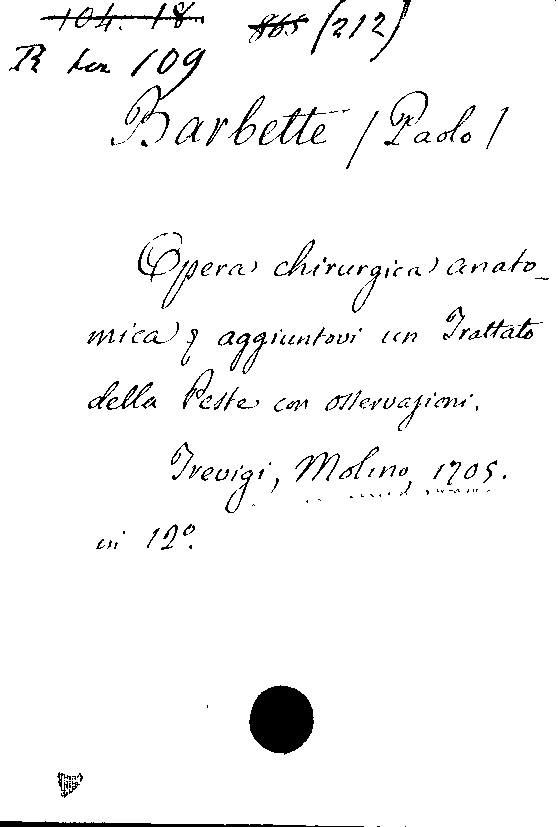 104. 18. 865 (212)
R ben 109
Barbette (Paolo)
Opera chirurgica anato-
mica & aggiuntovi un Trattato
della Peste con osservazioni.
Trevigi, Molino, 1705.
in 12º.